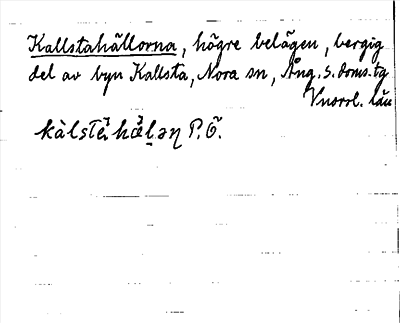 Kallstahällorna, högre belägen, bergig
del av byn Kallsta, Nora sn, Ång. s. doms. tg
Vnorrl. län
P. Ö.